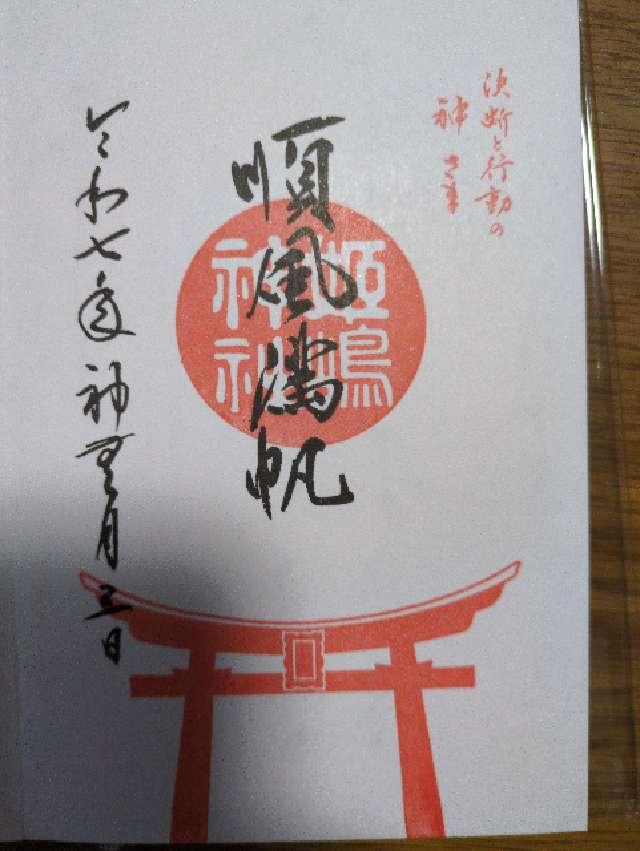 決断と行動の
神さま
順風満帆
姫嶋
神社
令和七年神無月三日